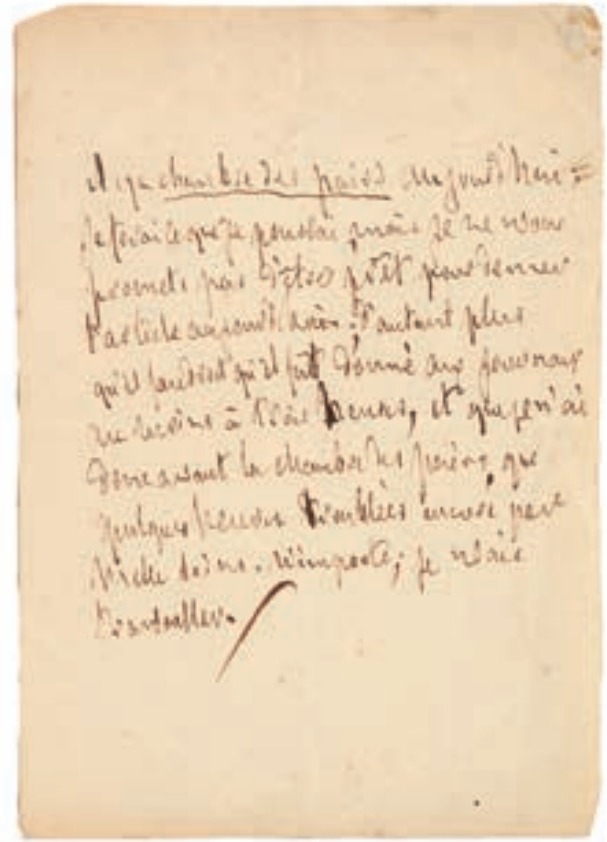 il y a chambre des pairs aujourd'hui =
Je ferai ce que je pourrai, mais je ne vous
promets pas d'être prêt pour donner
l'article aujourd'hui. D'autant plus
qu'il faudrait qu'il fût donné aux journaux
au moins à trois heures, et que je n'ai
donc avant la chambre des pairs, que
quelques heures troublées encore par
mille soins. N'importe; je vais
travailler.